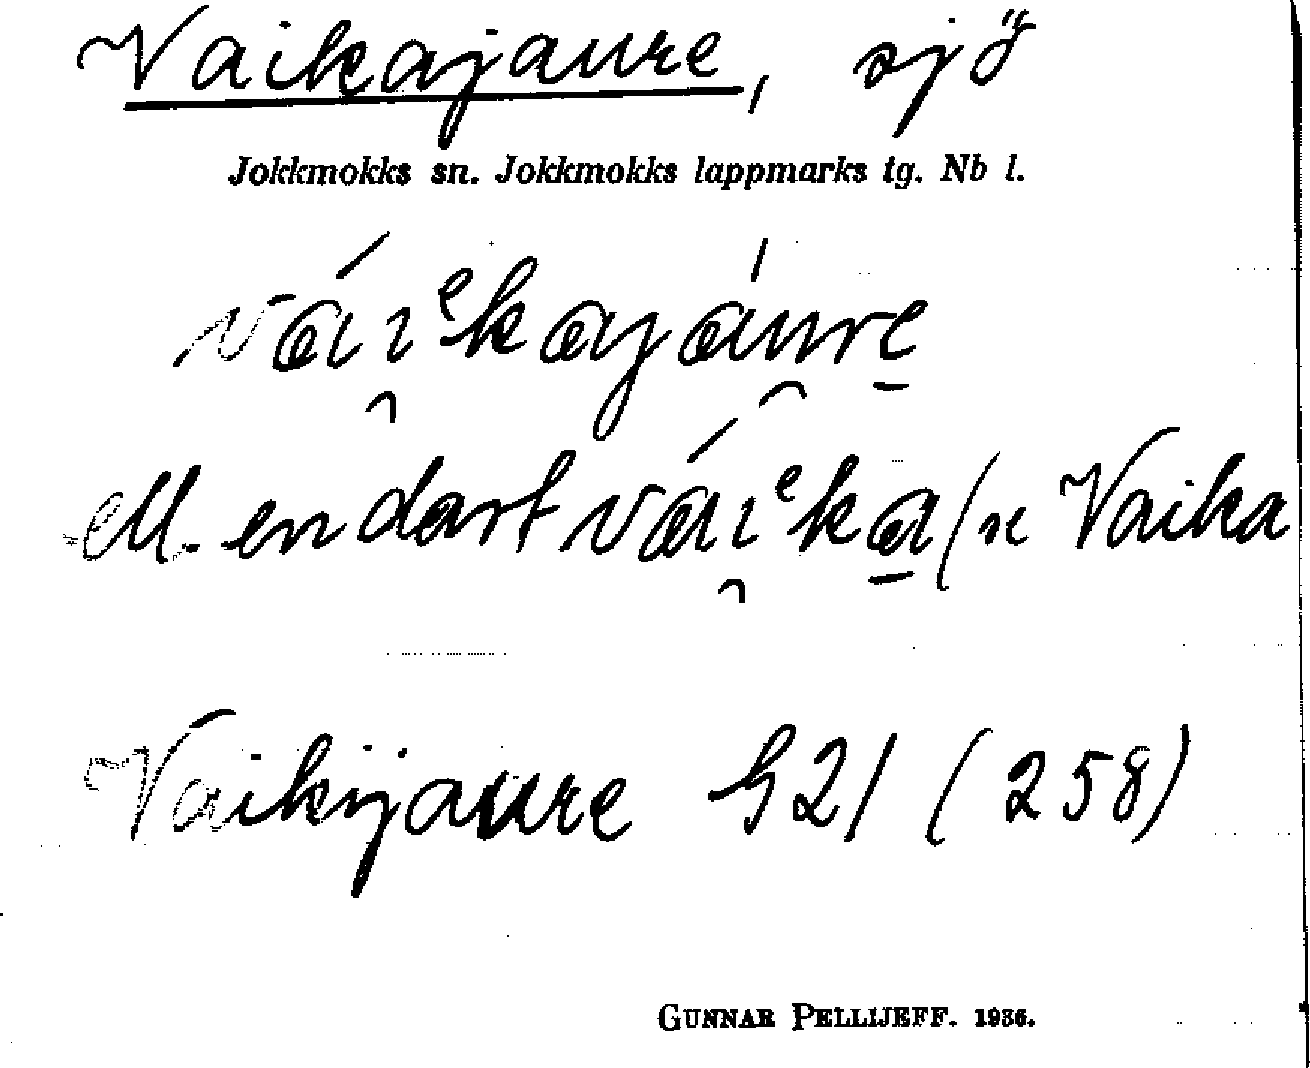 Vaikajaure, sjö
Jokkmokks sn. Jokkmokks lappmarks tg. Nb l.
váı̯ᵉkajáu̯re̱
ell. endast váı̯ᵉka̱ (se Vaika
Vaikijaure h21 (258)
GUNNAR PELLIJEFF. 1936.